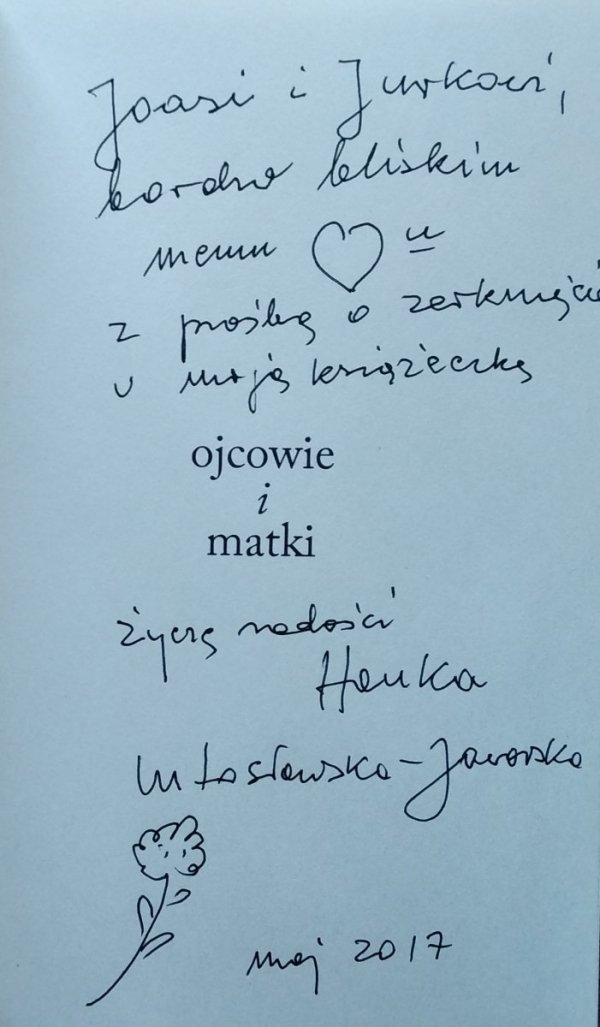 Joasi i Jurkowi,
bardzo bliskim
memu ♡ u
z prośbą o zerknięcie
w moją książeczkę
ojcowie
i
matki
życzę radości
Hanka
Lutosławska-Jaworska
maj 2017